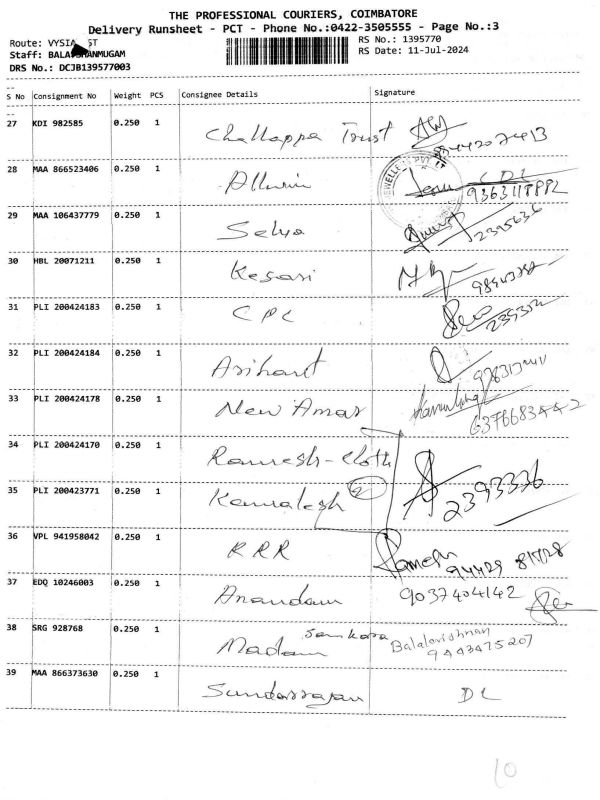 THE PROFESSIONAL COURIERS, COIMBATORE
Delivery Runsheet - PCT - Phone No.:0422-3505555 - Page No.:3
Route: VYSIA ST
RS No.: 1395770
Staff: BALA MUGAM
RS Date: 11-Jul-2024
DRS No.: DCJB139577003
S No Consignment No Weight PCS Consignee Details Signature
27 KDI 982585 0.250 1 Challappa Trust
28 MAA 866523406 0.250 1 CDL
JEWELLERS PVT LT
9363118882
29 MAA 106437779 0.250 1 Selva 2395636
30 HBL 20071211 0.250 1 Kesari
31 PLI 200424183 0.250 1 CPC
32 PLI 200424184 0.250 1 Arihant
33 PLI 200424178 0.250 1 New Amar
6376683442
34 PLI 200424170 0.250 1 Ramesh-cloth
35 PLI 200423771 0.250 1 Kamalesh 2 2393336
36 VPL 941958042 0.250 1 RRR Ramesh
37 EDQ 10246003 0.250 1 Anandam 9037404142
38 SRG 928768 0.250 1 Madam Sankara Balakrishnan
9443475207
39 MAA 866373630 0.250 1 Sundarrajan DL
10